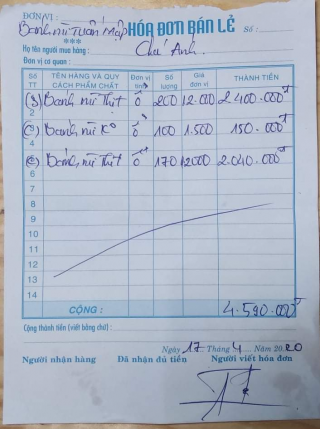 ĐƠN VỊ:
Bánh mì Tuấn Mập HÓA ĐƠN BÁN LẺ Số:
***
Họ tên người mua hàng: Chú Anh
Đơn vị cơ quan:
Số TT TÊN HÀNG VÀ QUY CÁCH PHẨM CHẤT Đơn vị tính Số lượng Giá đơn vị THÀNH TIỀN
(S) Bánh mì Thịt ổ 200 12.000 2.400.000đ
2
(C) Bánh mì Kô ổ 100 1.500 150.000đ
4
Bánh mì Thịt ổ 170 12000 2.040.000đ
6
7
8
9
10
11
12
13
14
CỘNG: 4.590.000đ
Cộng thành tiền (viết bằng chữ):
Ngày 17 Tháng 4 Năm 2020
Người nhận hàng Đã nhận đủ tiền Người viết hóa đơn